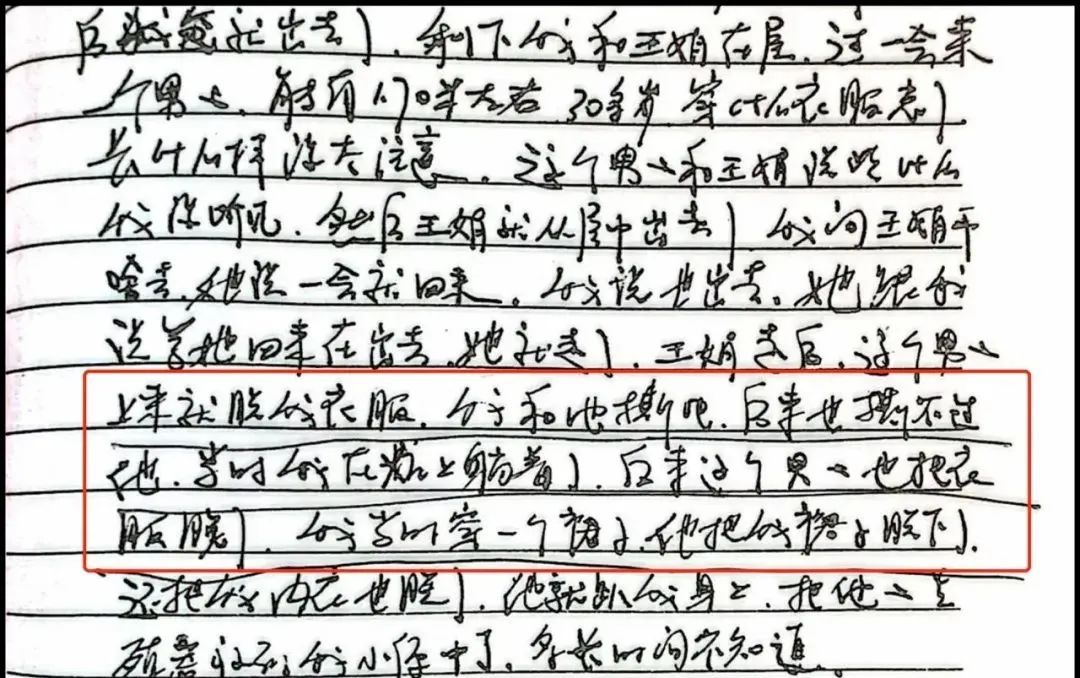 后就出去了,剩下我和王娟在屋,过一会来
一个男人,身高170米左右,30多岁,穿什么衣服忘了
长什么样没太注意,这个男人和王娟说些什么
我没听见,然后王娟就从屋中出去了,我问王娟干
啥去,她说一会就回来,我说也出去,她跟我
说等她回来在出去,她就走了,王娟走后,这个男人
上来就脱我衣服,我和他撕吧,后来也撕不过
他,当时我在炕上躺着了,后来这个男人也把衣
服脱了,我当时穿一个裙子,他把我裙子脱下了,
还把我内衣也脱了,他就趴我身上,把他人生
殖器放到我小便中了,多长时间不知道